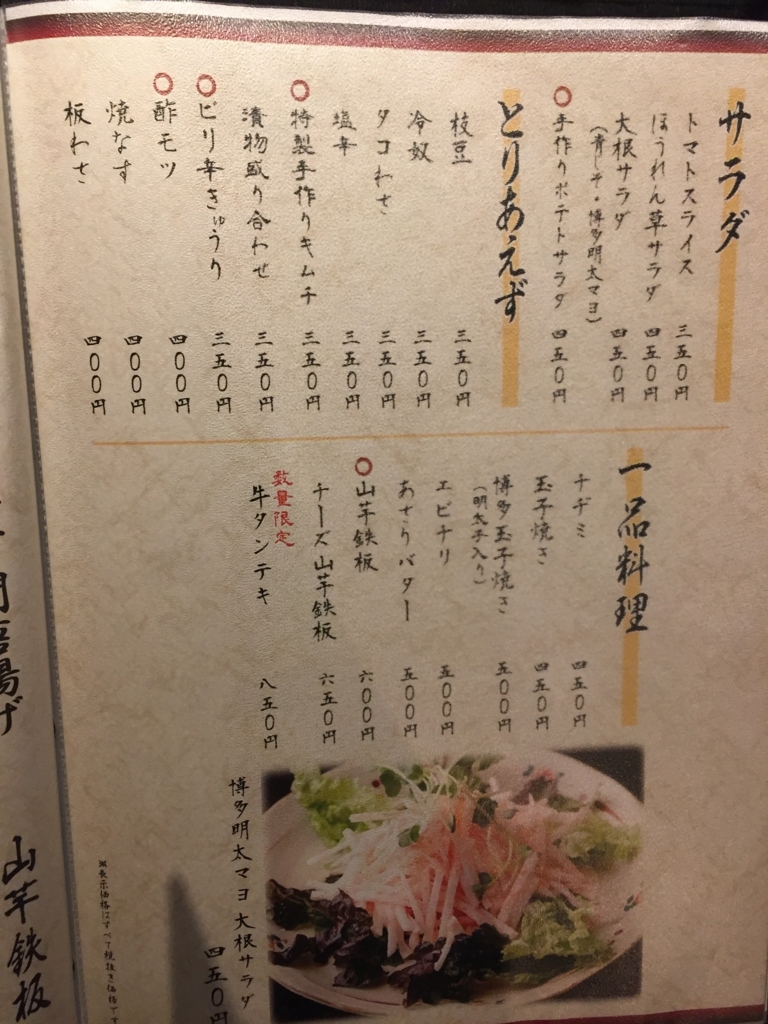 サラダ
トマトスライス 三五〇円
ほうれん草サラダ 四五〇円
大根サラダ 四五〇円
（青じそ・博多明太マヨ）
○手作りポテトサラダ 四五〇円
とりあえず
枝豆 三五〇円
冷奴 三五〇円
タコわさ 三五〇円
塩辛 三五〇円
○特製手作りキムチ 三五〇円
漬物盛り合わせ 三五〇円
○ピリ辛きゅうり 三五〇円
○酢モツ 四〇〇円
焼なす 四〇〇円
板わさ 四〇〇円
一品料理
チヂミ 四五〇円
玉子焼き 四五〇円
博多玉子焼き 五〇〇円
（明太子入り）
エビチリ 五〇〇円
あさりバター 五〇〇円
○山芋鉄板 六〇〇円
チーズ山芋鉄板 六五〇円
数量限定
牛タンテキ 八五〇円
博多明太マヨ大根サラダ
四五〇円
表示価格はすべて税抜き価格です
唐揚げ
山芋鉄板